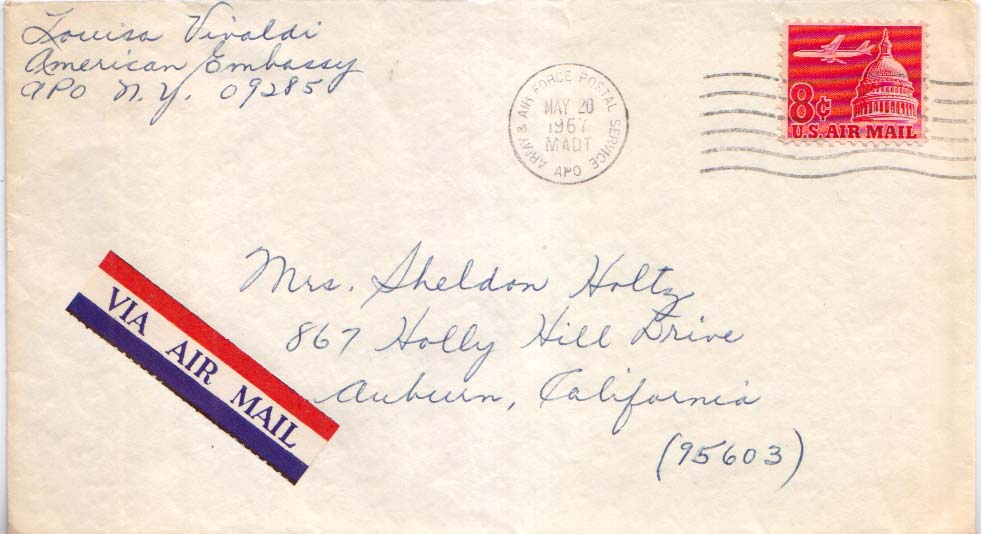 Louisa Vivaldi
American Embassy
APO N.Y. 09285
ARMY & AIR FORCE POSTAL SERVICE
MAY 20
1967
MADT
APO
8¢
U.S. AIR MAIL
Mrs. Sheldon Holtz
867 Holly Hill Drive
Auburn, California
(95603)
VIA AIR MAIL